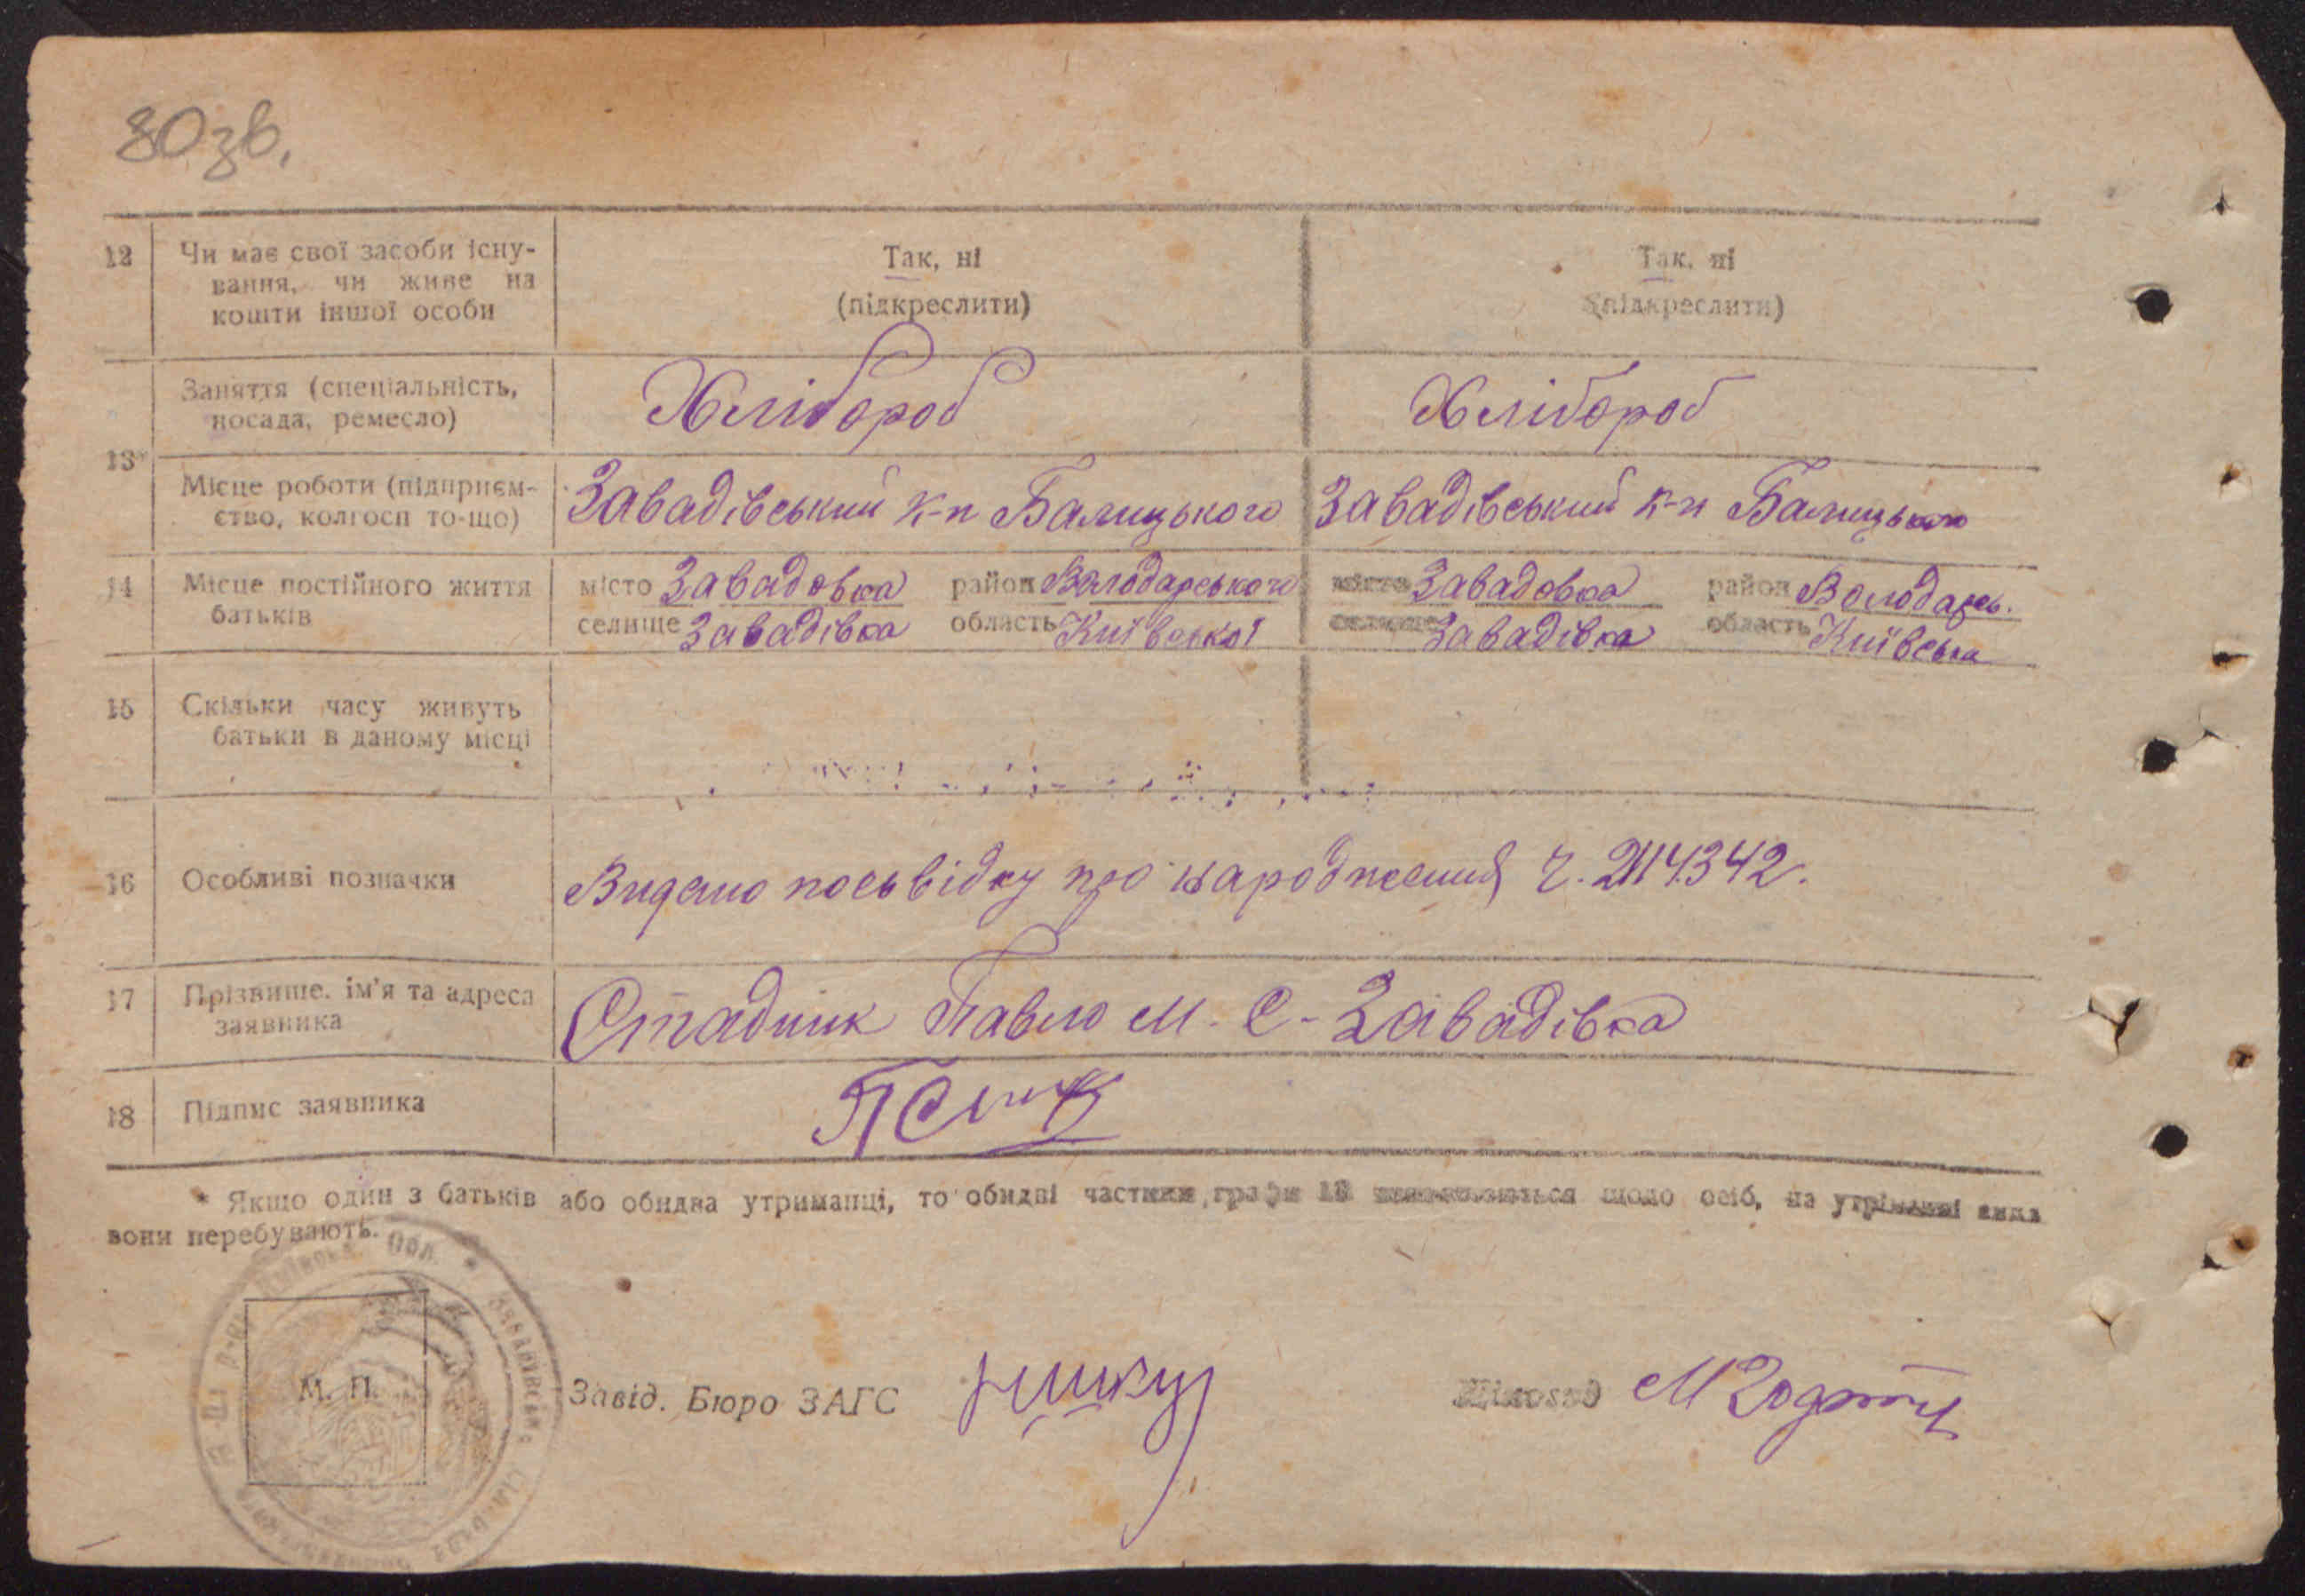 80зв.
12 Чи має свої засоби існу- Так, ні Так, ні
вання, чи живе на (підкреслити) (підкреслити)
кошти іншої особи
Заняття (спеціальність, Хлібороб Хлібороб
посада, ремесло)
13*
Місце роботи (підприєм- Завадівський к-п Балицького Завадівський к-п Балицького
ство, колгосп то-що)
14 Місце постійного життя місто Завадовка район Володарського місто Завадовка район Володарсь.
батьків селище Завадівка область Київської селище Завадівка область Київська
15 Скільки часу живуть
батьки в даному місці
16 Особливі позначки Видано посьвідку про народження ч. 2114342.
17 Прізвище, ім'я та адреса Стадник Павло М. С-Завадівка
заявника
18 Підпис заявника
* Якщо один з батьків або обидва утриманці, то обидві частини графи 13 щодо осіб, на утриманні яких
вони перебувають.
М. П.
Завід. Бюро ЗАГС